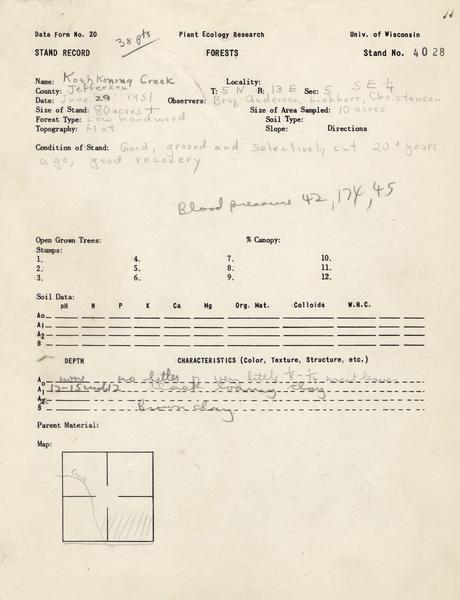 Data Form No. 20 Plant Ecology Research Univ. of Wisconsin
38 pts
STAND RECORD FORESTS Stand No. 4028
Name: Koshkonong Creek Locality:
County: Jefferson T: 5 N R: 13 E Sec: 5 SE 1/4
Date: June 29 1951 Observers: Bray, Anderson, Liebherr, Christensen
Size of Stand: 80 acres + Size of Area Sampled: 10 acres
Forest Type: Low hardwood Soil Type:
Topography: Flat Slope: Directions
Condition of Stand: Good, grazed and selectively cut 20+ years
ago, good recovery
Blood pressure 42, 174, 45
Open Grown Trees: % Canopy:
Stumps:
1. 4. 7. 10.
2. 5. 8. 11.
3. 6. 9. 12.
Soil Data:
pH N P K Ca Mg Org. Mat. Colloids W.H.C.
Ao
A1
A2
B
DEPTH CHARACTERISTICS (Color, Texture, Structure, etc.)
Ao none no litter very little
A1 12-15 Black loamy clay
A2
B Brown clay
Parent Material:
Map:
Creek